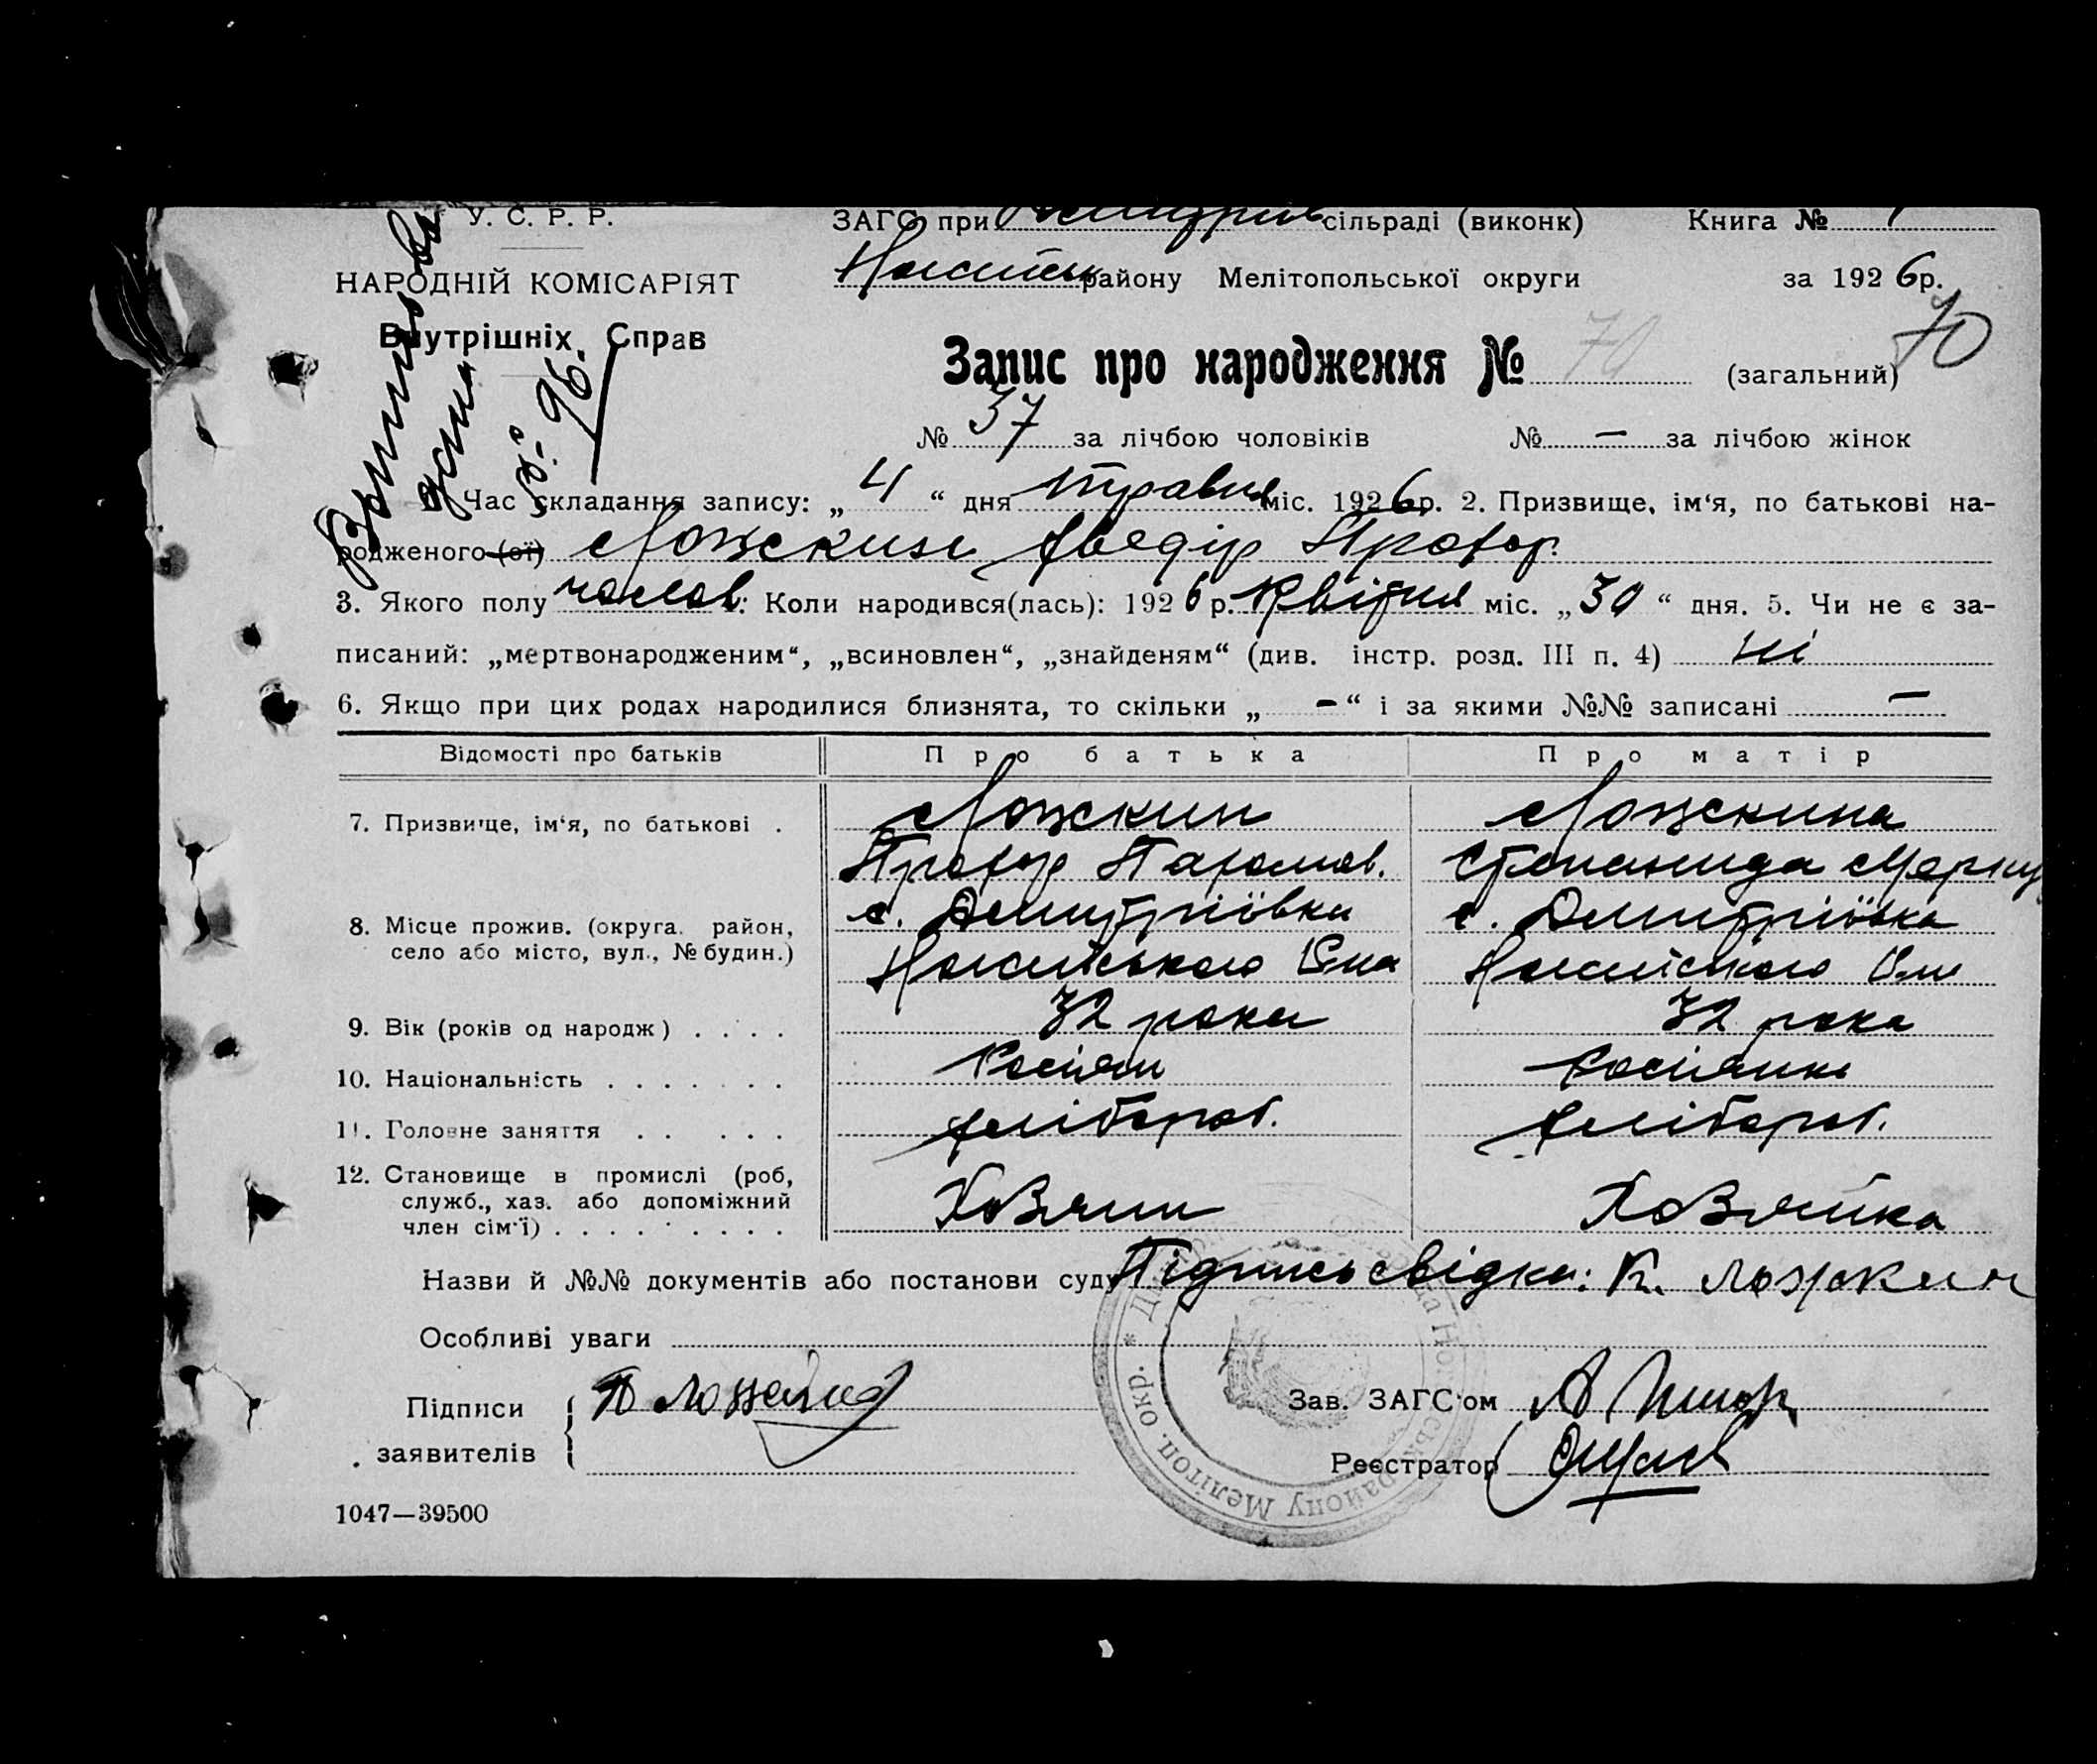 У. С. Р. Р.
НАРОДНІЙ КОМІСАРІЯТ
Внутрішніх Справ
ЗАГС при сільраді (виконк)
Книга №
району Мелітопольської округи
за 1926 р.
Запис про народження № 70 (загальний) 70
№ 37 за лічбою чоловіків № — за лічбою жінок
Час складання запису: „4“ дня травня міс. 1926 р. 2. Призвище, ім‘я, по батькові на-
родженого (ої) Ложскин Федір Прохор.
3. Якого полу чолов. Коли народився(лась): 1926 р. Квітня міс. „30“ дня. 5. Чи не є за-
писаний: „мертвонародженим“, „всиновлен“, „знайденям“ (див. інстр. розд. III п. 4) ні
6. Якщо при цих родах народилися близнята, то скільки „ - “ і за якими №№ записані —
Відомості про батьків Про батька Про матір
7. Призвище, ім‘я, по батькові . Ложскин Ложскина
Прохор Пахомов. Степанида
8. Місце прожив. (округа. район, с. Дмитріївка с. Дмитріївка
село або місто, вул., № будин.)
9. Вік (років од народж) . . . . 32 роки 32 рока
10. Національність . . . . . . . Росіян Росіянка
11. Головне заняття . . . . . хлібороб. хлібороб.
12. Становище в промислі (роб,
служб., хаз. або допоміжний
член сім‘ї) . . . . . . . . . Хозяин Хозяйка
Назви й №№ документів або постанови суду Підпись свідка: К. Ложкин
Особливі уваги
Підписи
заявителів
Зав. ЗАГС‘ом
Реєстратор
району Мелітоп. окр. *
1047—39500